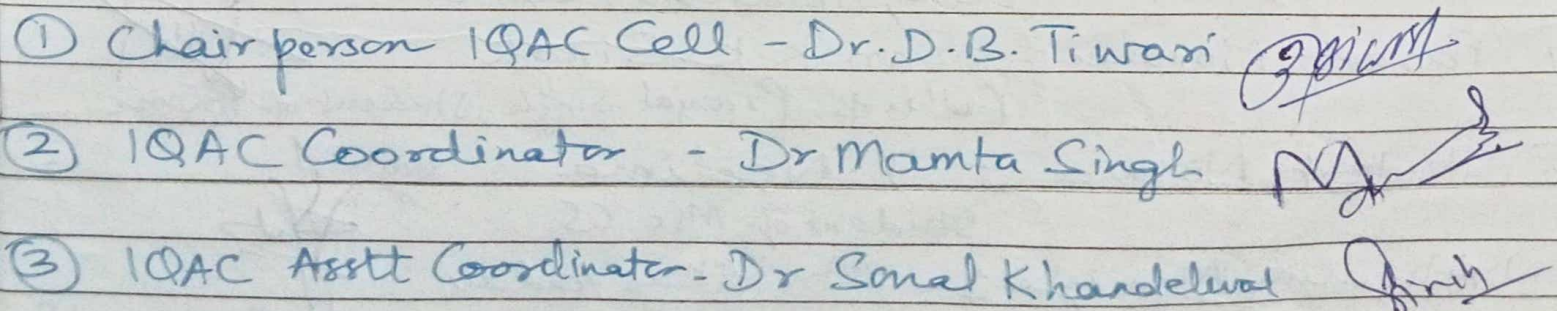 ① Chairperson IQAC Cell - Dr. D. B. Tiwari
② IQAC Coordinator - Dr Mamta Singh
③ IQAC Asstt Coordinator - Dr Sonal Khandelwal